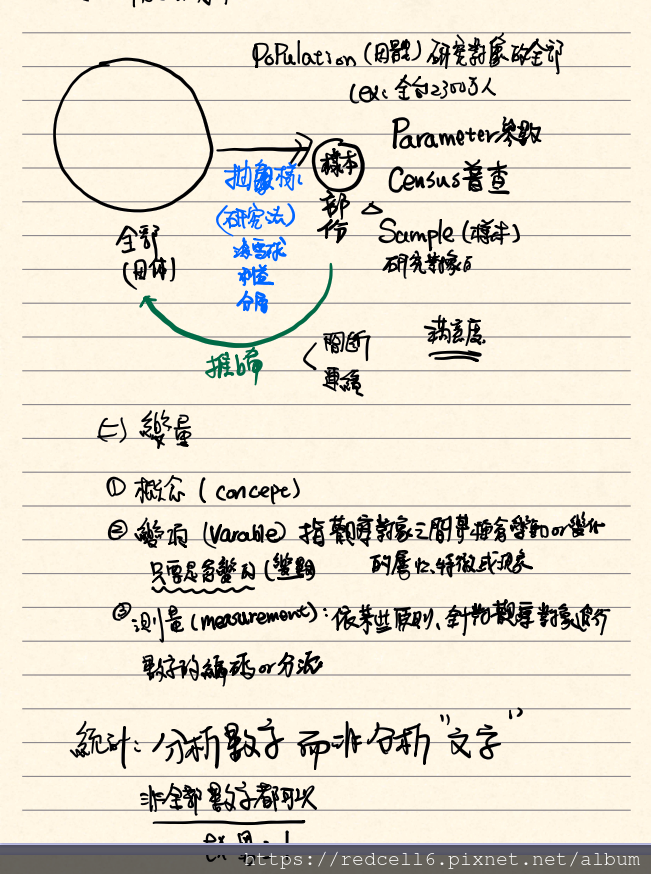 Population (母體) 研究對象的全部
(ex: 全台2300万人
Parameter 參數
樣本
Census 普查
抽樣
部份
(研究法)
Sample (樣本)
全部
滾雪球
研究對象
(母体)
分層
間斷
滿意度
推論
連續
(二) 變量
① 概念 (concept)
② 變項 (Varable) 指觀察對象之間 變動 or 變化
只要是會變的 的屬性、特徵或現象
③ 測量 (measurement): 依某些原則、針對觀察對象進行
數字的編碼 or 分派
統計: 分析數字 而非分析 "文字"
非全部數字都可以
https://redcell6.pixnet.net/album